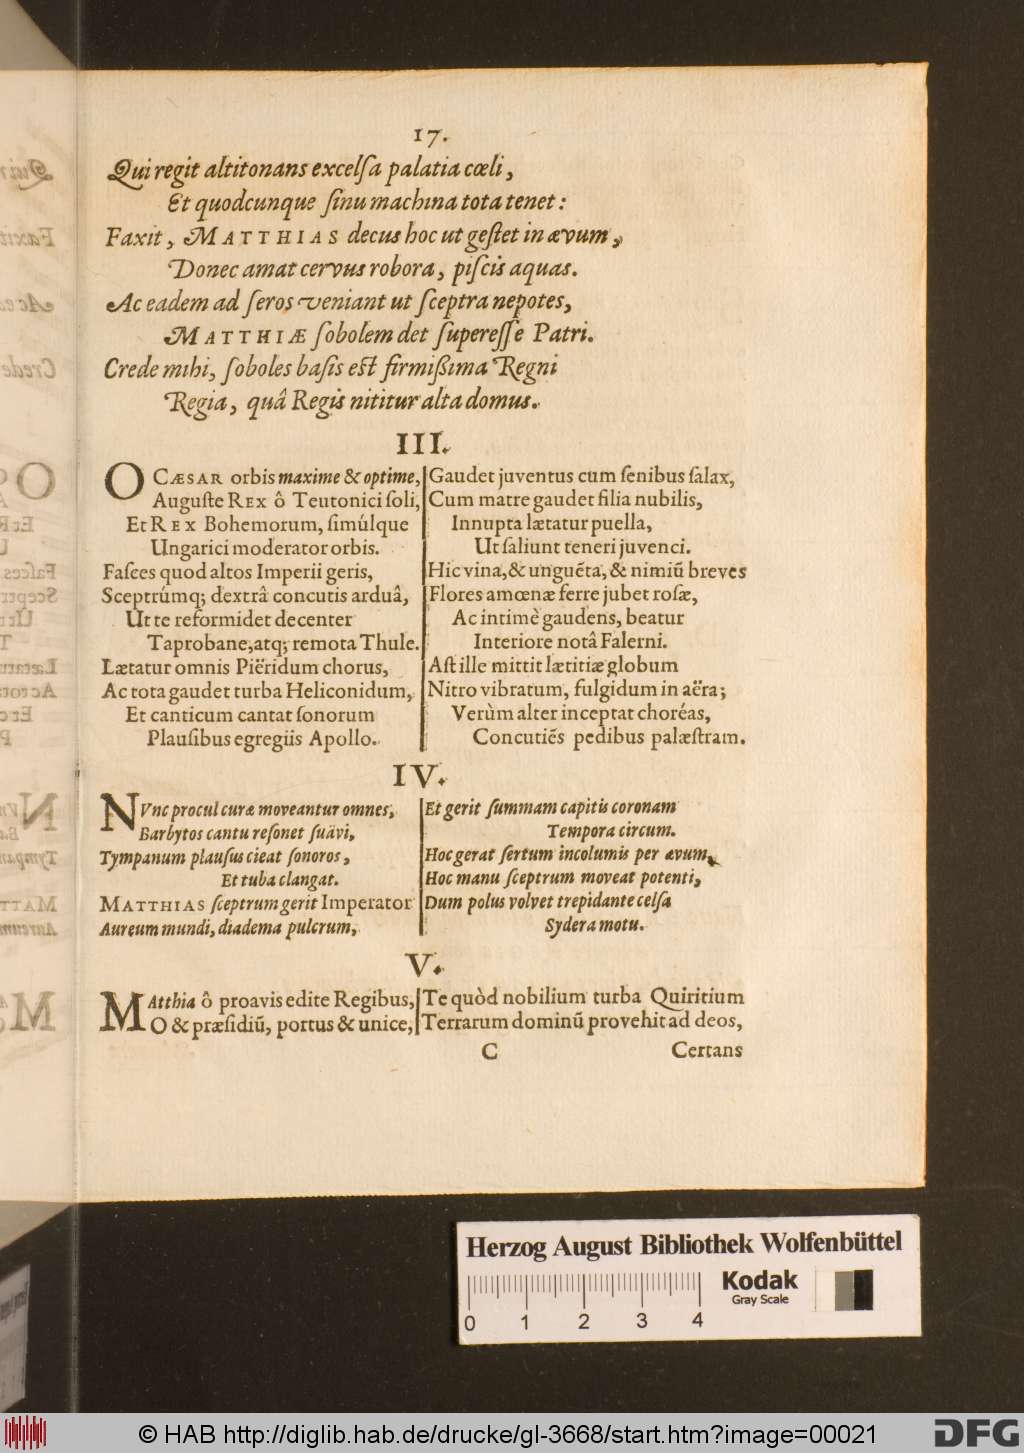 17.
Qui regit altitonans excelſa palatia cœli,
Et quodcunque ſinu machina tota tenet:
Faxit, MATTHIAS decus hoc ut geſtet in ævum,
Donec amat cervus robora, piſcis aquas.
Ac eadem ad ſeros veniant ut ſceptra nepotes,
MATTHIÆ ſobolem det ſupereſſe Patri.
Crede mihi, ſoboles baſis eſt firmißima Regni
Regia, quâ Regis nititur alta domus.
III.
O CÆSAR orbis maxime & optime,
Auguſte REX ô Teutonici ſoli,
Et REX Bohemorum, ſimúlque
Ungarici moderator orbis.
Faſces quod altos Imperii geris,
Sceptrúmq; dextrâ concutis arduâ,
Ut te reformidet decenter
Taprobane, atq; remota Thule.
Lætatur omnis Piëridum chorus,
Ac tota gaudet turba Heliconidum,
Et canticum cantat ſonorum
Plauſibus egregiis Apollo.
Gaudet juventus cum ſenibus ſalax,
Cum matre gaudet filia nubilis,
Innupta lætatur puella,
Ut ſaliunt teneri juvenci.
Hic vina, & unguẽta, & nimiũ breves
Flores amœnæ ferre jubet roſæ,
Ac intimè gaudens, beatur
Interiore notâ Falerni.
Aſt ille mittit lætitiæ globum
Nitro vibratum, fulgidum in aëra;
Verùm alter inceptat choréas,
Concutiẽs pedibus palæſtram.
IV.
NVnc procul curæ moveantur omnes,
Barbytos cantu reſonet ſuävi,
Tympanum plauſus cieat ſonoros,
Et tuba clangat.
MATTHIAS ſceptrum gerit Imperator
Aureum mundi, diadema pulcrum,
Et gerit ſummam capitis coronam
Tempora circum.
Hoc gerat ſertum incolumis per ævum,
Hoc manu ſceptrum moveat potenti,
Dum polus volvet trepidante celſa
Sydera motu.
V.
MAtthia ô proavis edite Regibus,
O & præſidiũ, portus & unice,
Te quòd nobilium turba Quiritium
Terrarum dominũ provehit ad deos,
C
Certans
Herzog August Bibliothek Wolfenbüttel
0 1 2 3 4
Kodak
Gray Scale
© HAB http://diglib.hab.de/drucke/gl-3668/start.htm?image=00021
DFG